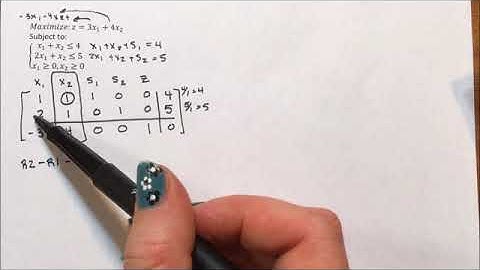 -3x₁-4x₂+z
Maximize: z = 3x₁ + 4x₂
Subject to:
x₁ + x₂ ≤ 4 x₁+x₂+S₁ = 4
2x₁ + x₂ ≤ 5 2x₁+x₂+S₂=5
x₁ ≥ 0, x₂ ≥ 0
x₁ x₂ S₁ S₂ Z
1 1 1 0 0 4 4/1=4
2 1 0 1 0 5 5/1=5
-3 4 0 0 1 0
R2-R1-